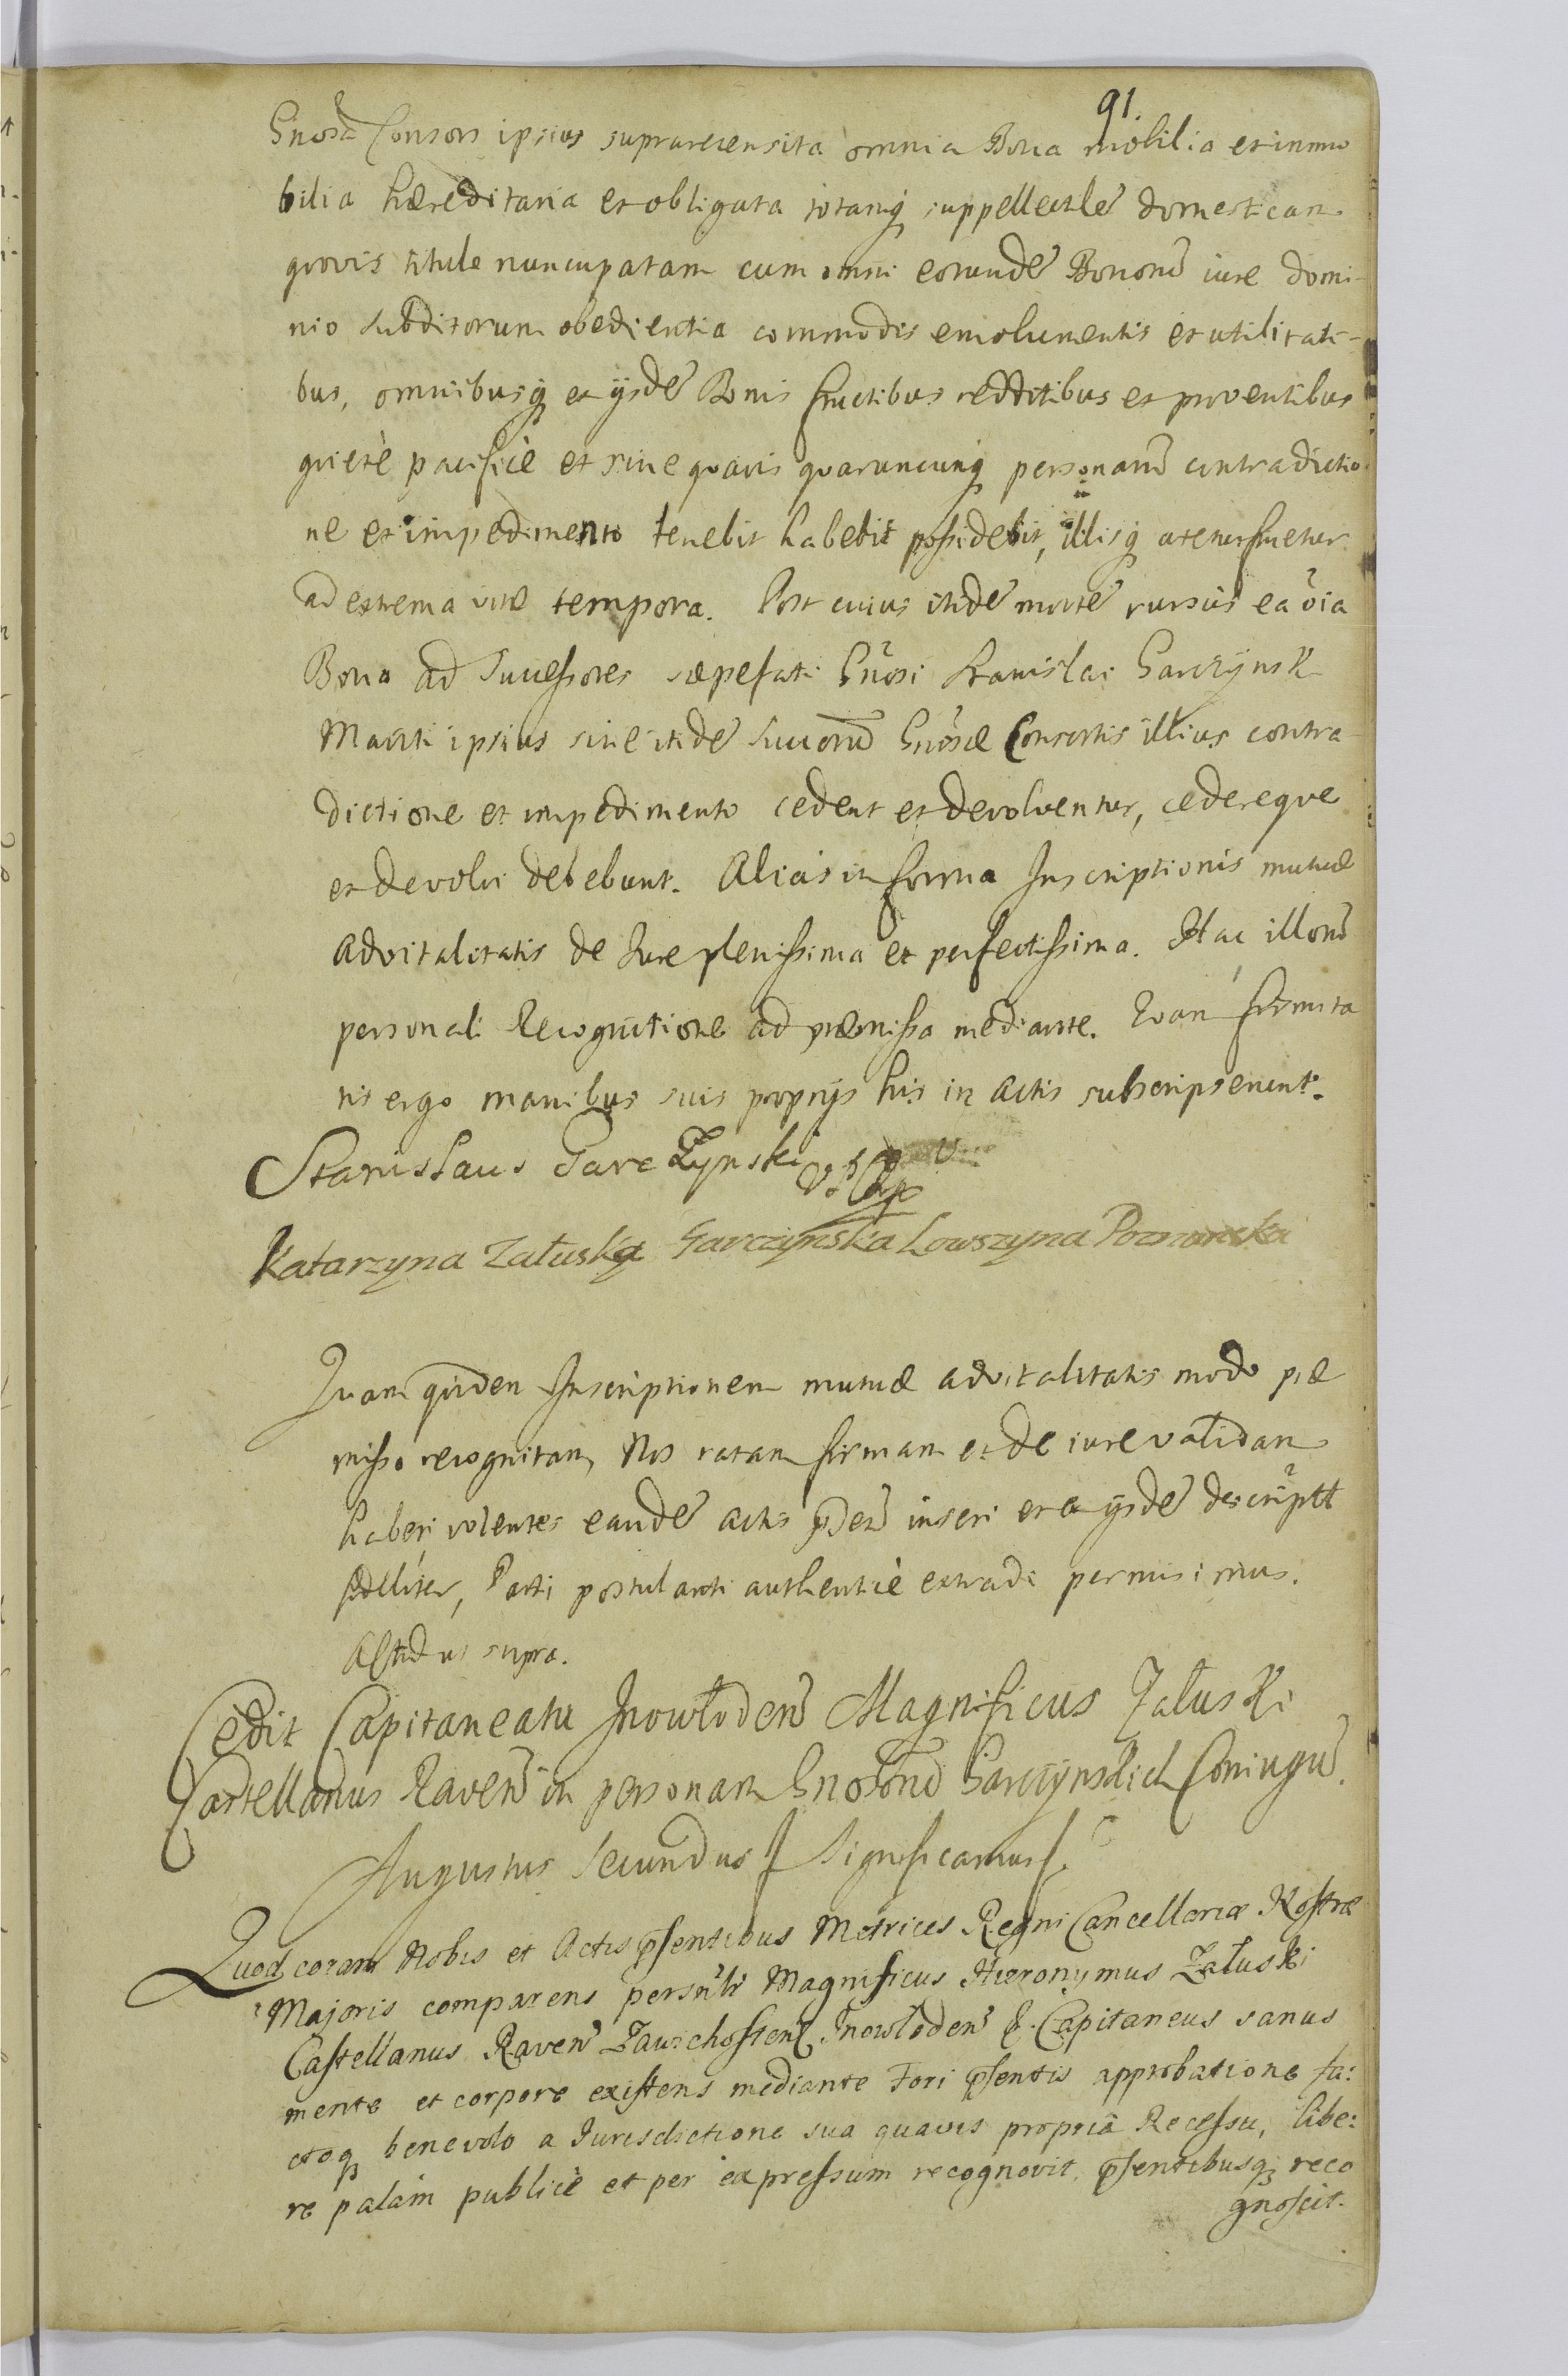 91.
Gnosa Consors ipsius suprarecensita omnia Bona mobilia et immo
bilia hæreditaria et obligata totamq suppellectile domesticam
quovis titulo nuncupatam cum omni eorunde Bonoru iure domi-
nio subditorum obedientia commodis emolumentis et utilitati-
bus, omnibusq ex ijsde Bonis fructibus redditibus et proventibus
quietè pacificè et sine quavis quaruncunq personaru contradictio
ne et impedimento tenebit habebit possidebit, illisq utetur fruetur
ad extrema vitæ tempora. Post cuius itide morte rursus ea oia
Bona ad Successores sæpefati Gnosi Stanislai Garczynski
Mariti ipsius sine itide Succoru Gnosæ Consortis illius contra
dictione et impedimento cedent et devolventur, cedereque
et devolvi debebunt. Alias in forma Inscriptionis mutuæ
advitalitatis de Iure plenissima et perfectissima. Hac illoru
personali Recognitione ad præmissa mediante. Quam firmita
tis ergo manibus suis proprijs his in actis subscripserunt.
Stanislaus Garczynski
Katarzyna Załuska Garczynska Lowczyna Poznanska
Quam quiden Inscriptionem mutuæ advitalitatis modo præ
misso recognitam, Nos ratam firmam et de iure validam
haberi volentes eande actis pdem inseri et ex ijsde descriptt
fidliter, Parti postulanti authenticè extradi permisimus.
Act tu Dt ut supra.
Cedit Capitaneatu Inowłoden Magnificus Załuski
Castellanus Raven in personam Gnosoru Garczynskich Coniugu.
Augustus Secundus Significamus
Quod coram Nobis et Actis psentibus Metrices Regni Cancellariæ Nostræ
Majoris comparens persnlr Magnificus Hieronymus Załuski
Castellanus Raven Zawichosten Inowłoden & Capitaneus sanus
mente et corpore existens mediante Fori psentis approbatione fa:
ctoq benevolo a Jurisdictione sua quavis propriâ Recessu, libe:
re palàm publicè et per expressum recognovit, psentibusq reco
gnoscit.